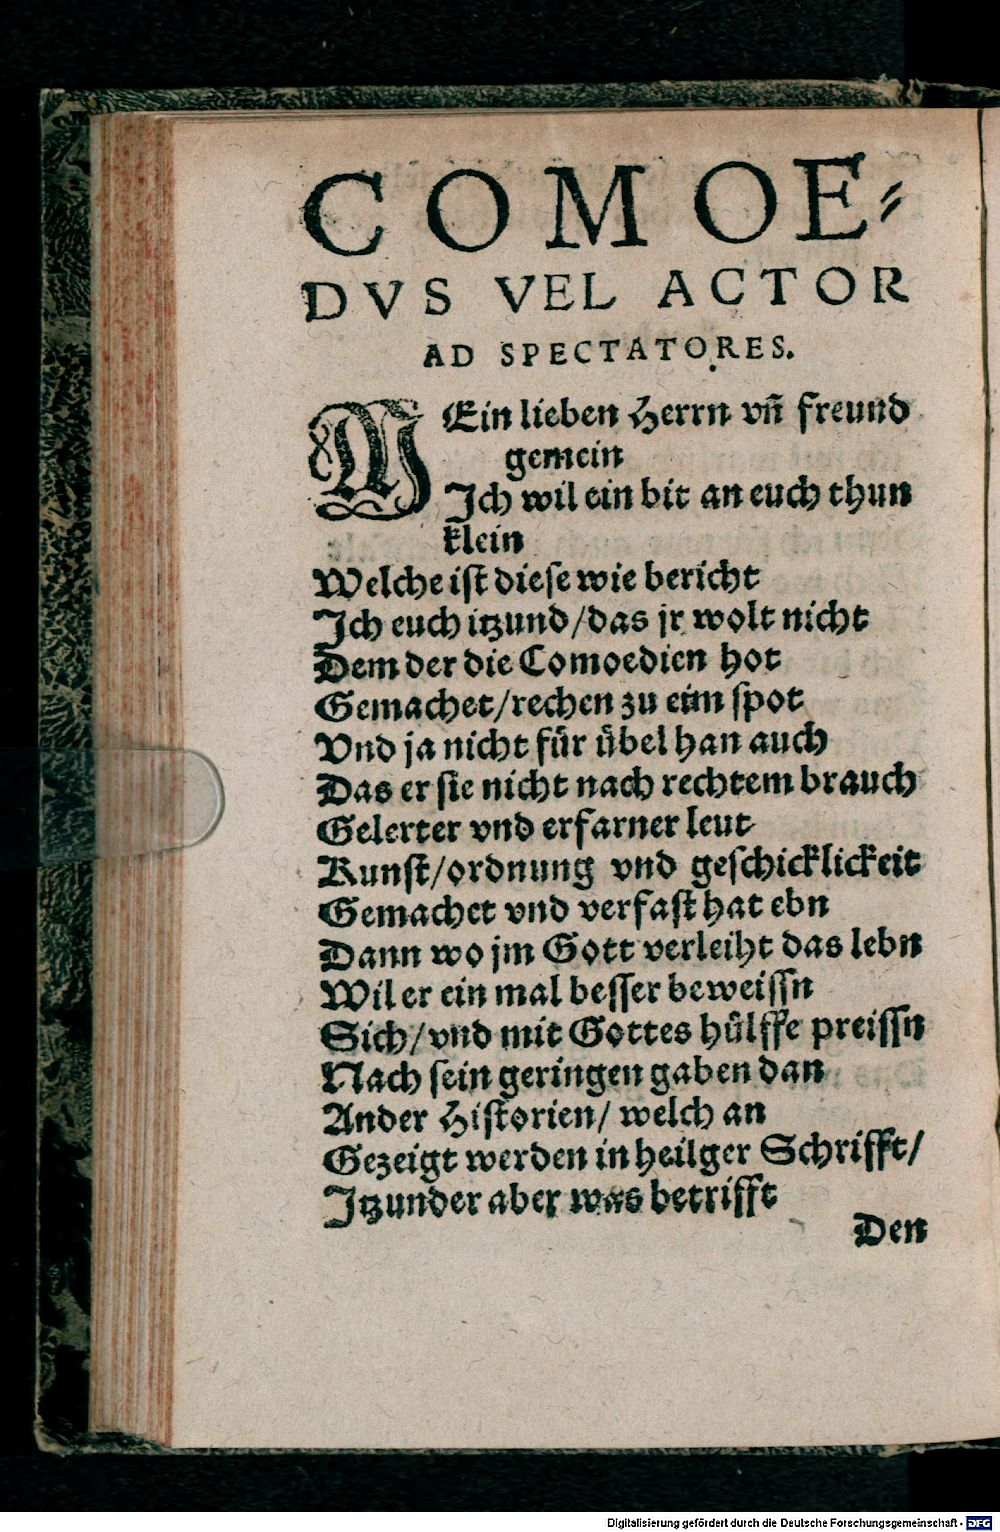 COMOE⸗
DVS VEL ACTOR
AD SPECTATORES.
MEin lieben Herrn vñ freund
gemein
Ich wil ein bit an euch thun
klein
Welche ist diese wie bericht
Ich euch itzund/das jr wolt nicht
Dem der die Comoedien hot
Gemachet/rechen zu eim spot
Vnd ja nicht fuͤr uͤbel han auch
Das er sie nicht nach rechtem brauch
Gelerter vnd erfarner leut
Kunst/ordnung vnd geschicklickeit
Gemachet vnd verfast hat ebn
Dann wo jm Gott verleiht das lebn
Wil er ein mal besser beweissn
Sich/vnd mit Gottes huͤlffe preissn
Nach sein geringen gaben dan
Ander Historien/ welch an
Gezeigt werden in heilger Schrifft/
Itzunder aber was betrifft
Den
Digitalisierung gefördert durch die Deutsche Forschungsgemeinschaft - DFG